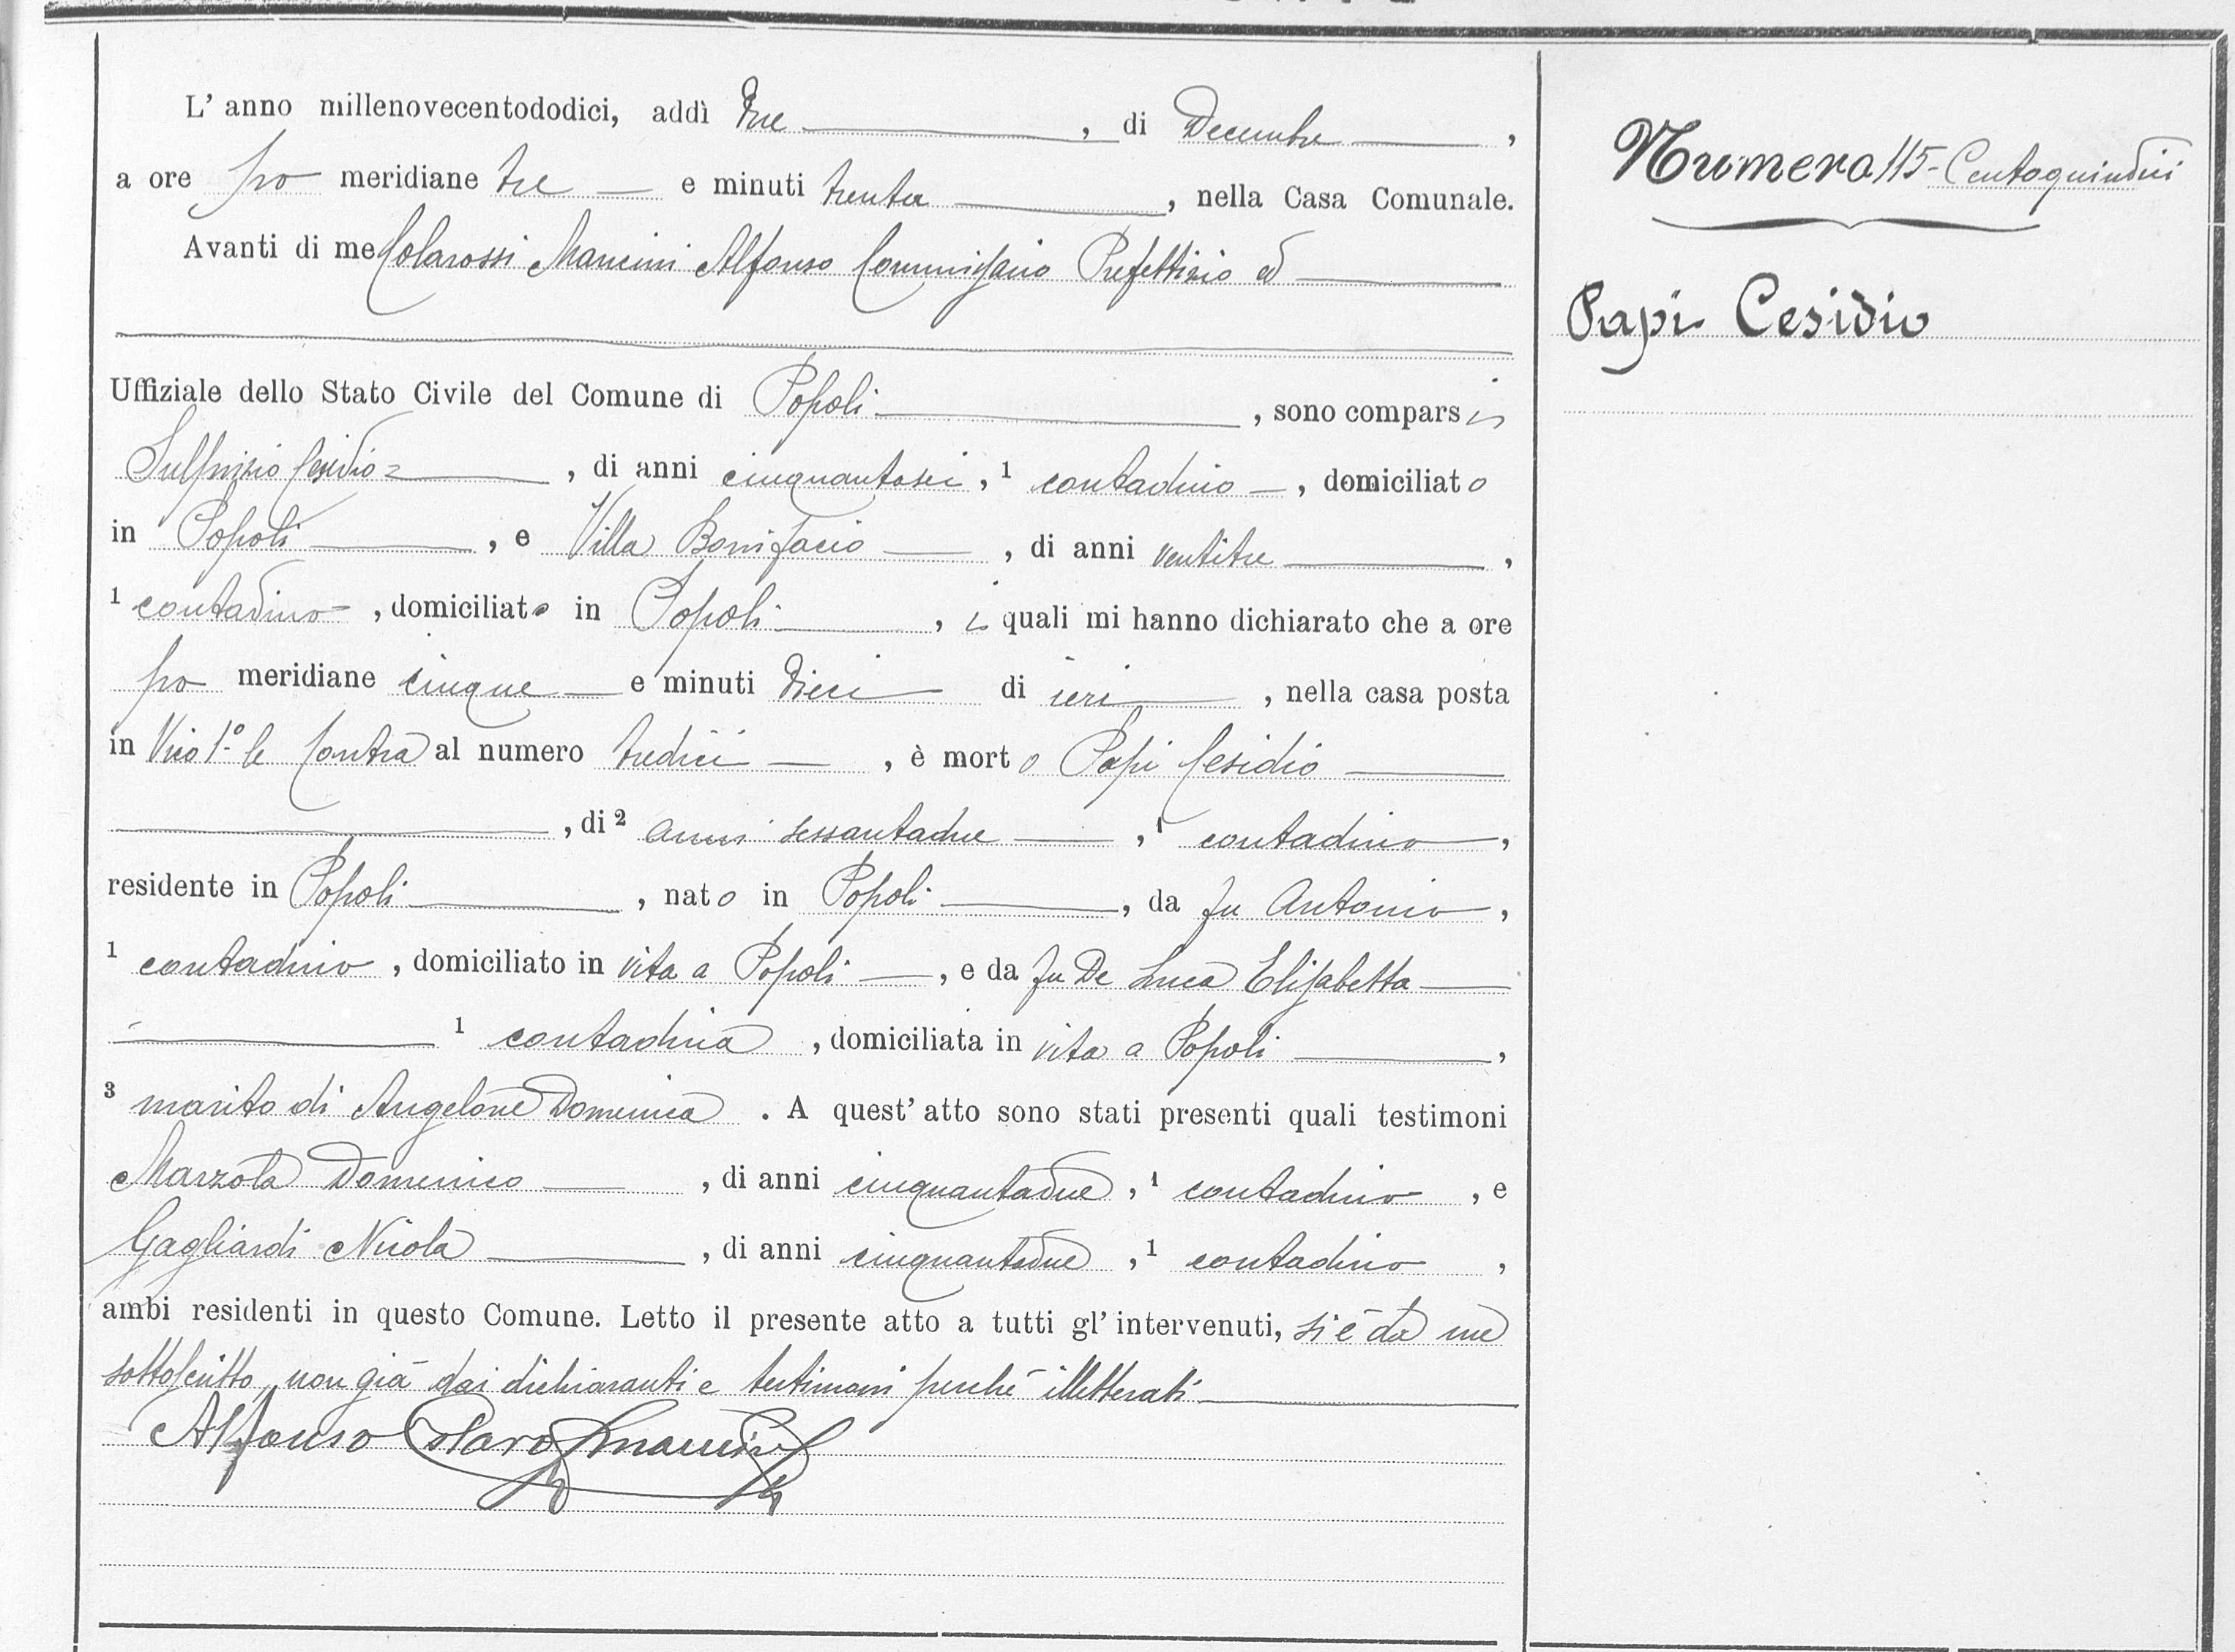 L' anno millenovecentododici, addì tre, di Decembre,
a ore po meridiane tre e minuti trenta, nella Casa Comunale.
Avanti di me Colarossi Mancini Alfonso Commissario Prefettizio ed
Uffiziale dello Stato Civile del Comune di Popoli, sono comparsi
Sulprizio Cesidio, di anni cinquantasei, ¹ contadino, domiciliato
in Popoli, e Villa Bonifacio, di anni ventitre,
¹ contadino, domiciliato in Popoli, i quali mi hanno dichiarato che a ore
po meridiane cinque e minuti dieci di ieri, nella casa posta
in Vico 1º le Contra al numero tredici, è morto Papi Cesidio
, di ² anni sessantadue, ¹ contadino,
residente in Popoli, nato in Popoli, da fu Antonio,
¹ contadino, domiciliato in vita a Popoli, e da fu De Luca Elisabetta
¹ contadina, domiciliata in vita a Popoli,
³ marito di Angelone Domenica. A quest' atto sono stati presenti quali testimoni
Marzola Domenico, di anni cinquantadue, ¹ contadino, e
Gagliardi Nicola, di anni cinquantadue, ¹ contadino,
ambi residenti in questo Comune. Letto il presente atto a tutti gl' intervenuti, si è da me
sottoscritto, non già dai dichiaranti e testimoni perché illetterati
Alfonso Colarossi Mancini
Numero 115 - Centoquindici
Papi Cesidio